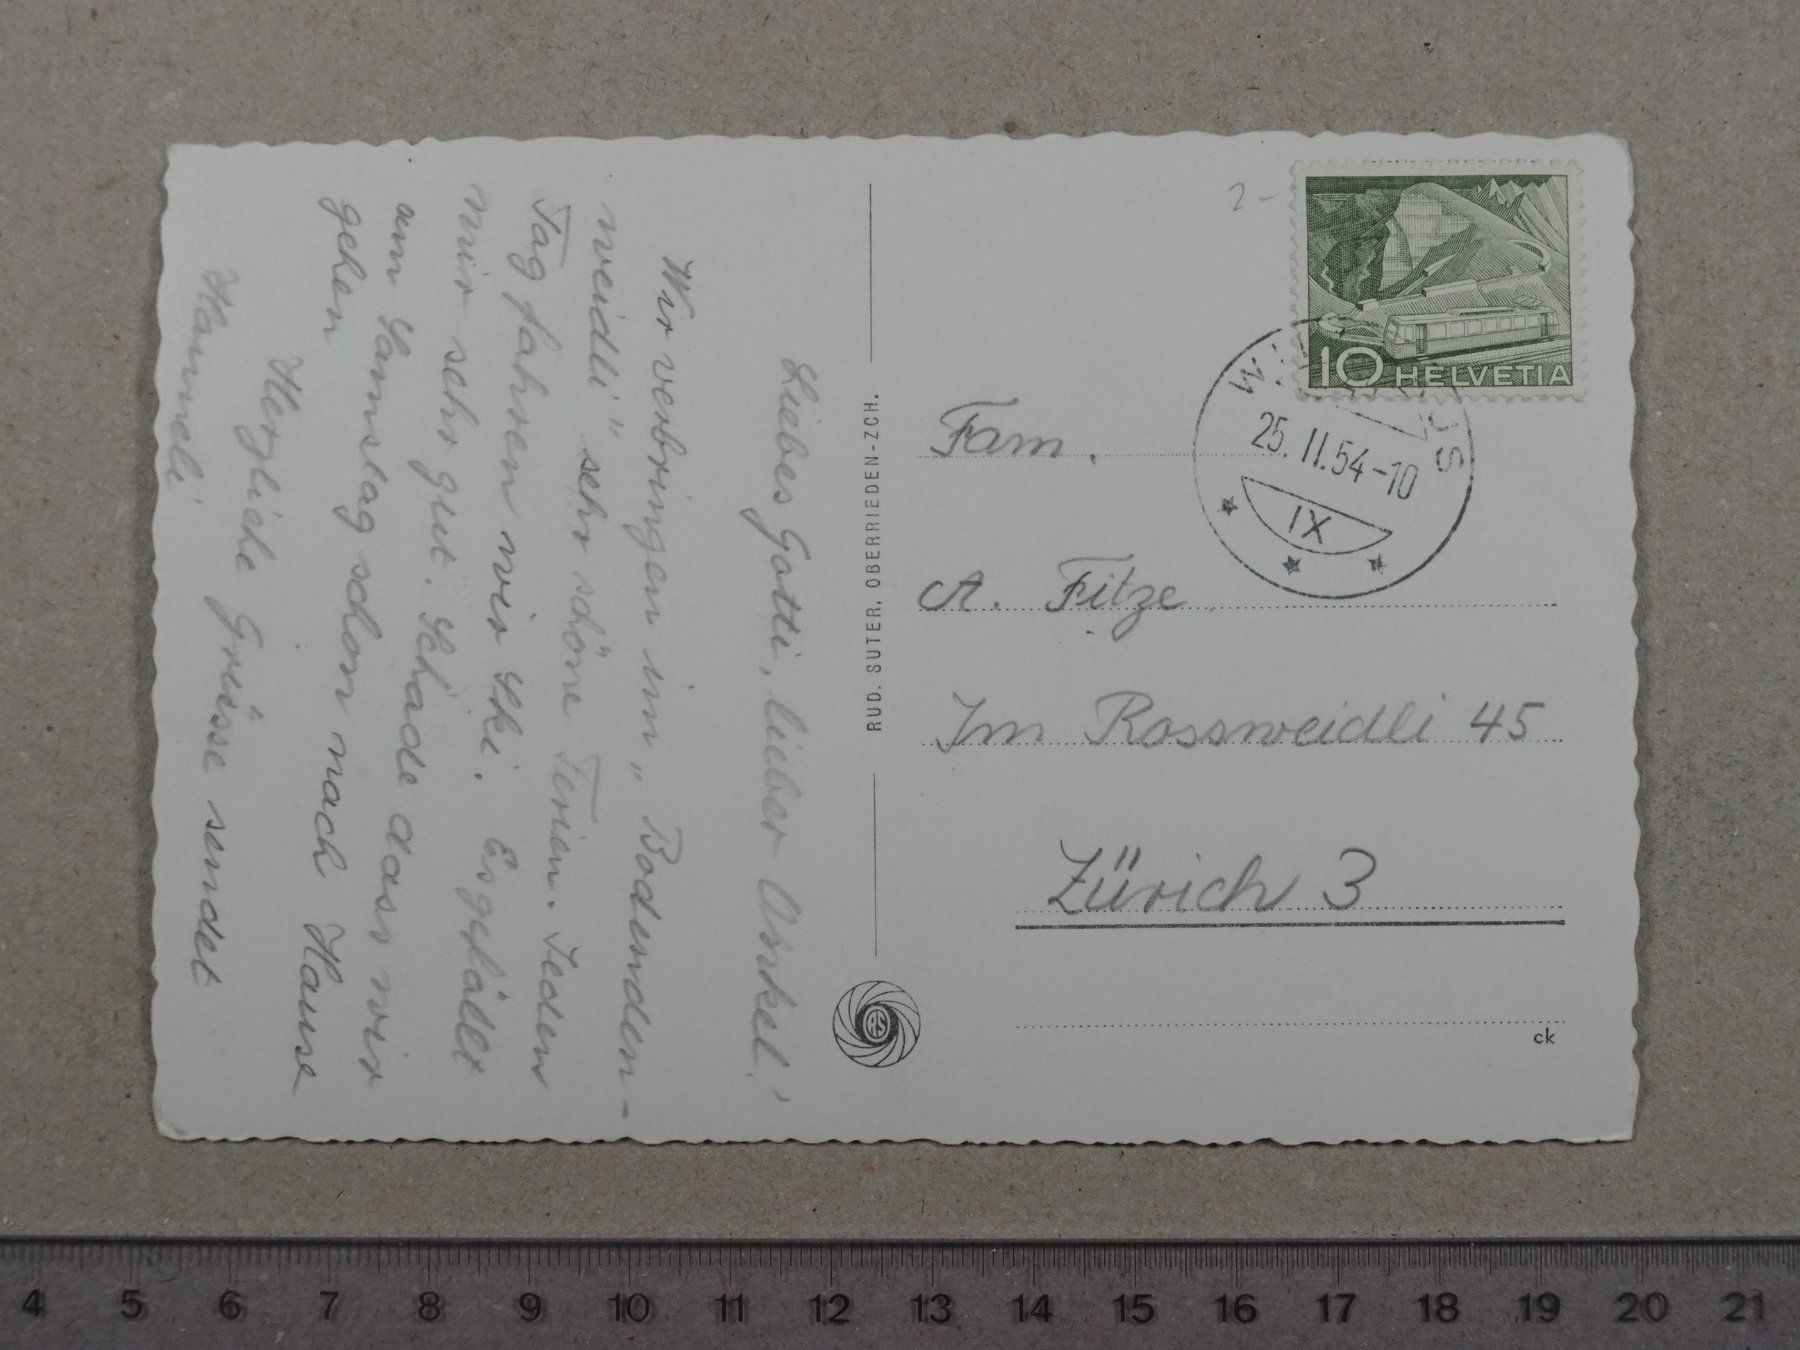 Liebes Gotti, lieber Onkel!
Wir verbringen im „Bodenwden-
weidli" sehr schöne Ferien. Jeden
Tag fahren wir Ski. Es gefällt
mir sehr gut. Schade dass wir
am Samstag schon nach Hause
gehen.
Herzliche Grüsse sendet
Hanneli
RUD. SUTER, OBERRIEDEN-ZCH.
RS
2-
10 HELVETIA
25. II. 54-10
IX
Fam.
A. Fitze
Im Rossweidli 45
Zürich 3
ck
4 5 6 7 8 9 10 11 12 13 14 15 16 17 18 19 20 21